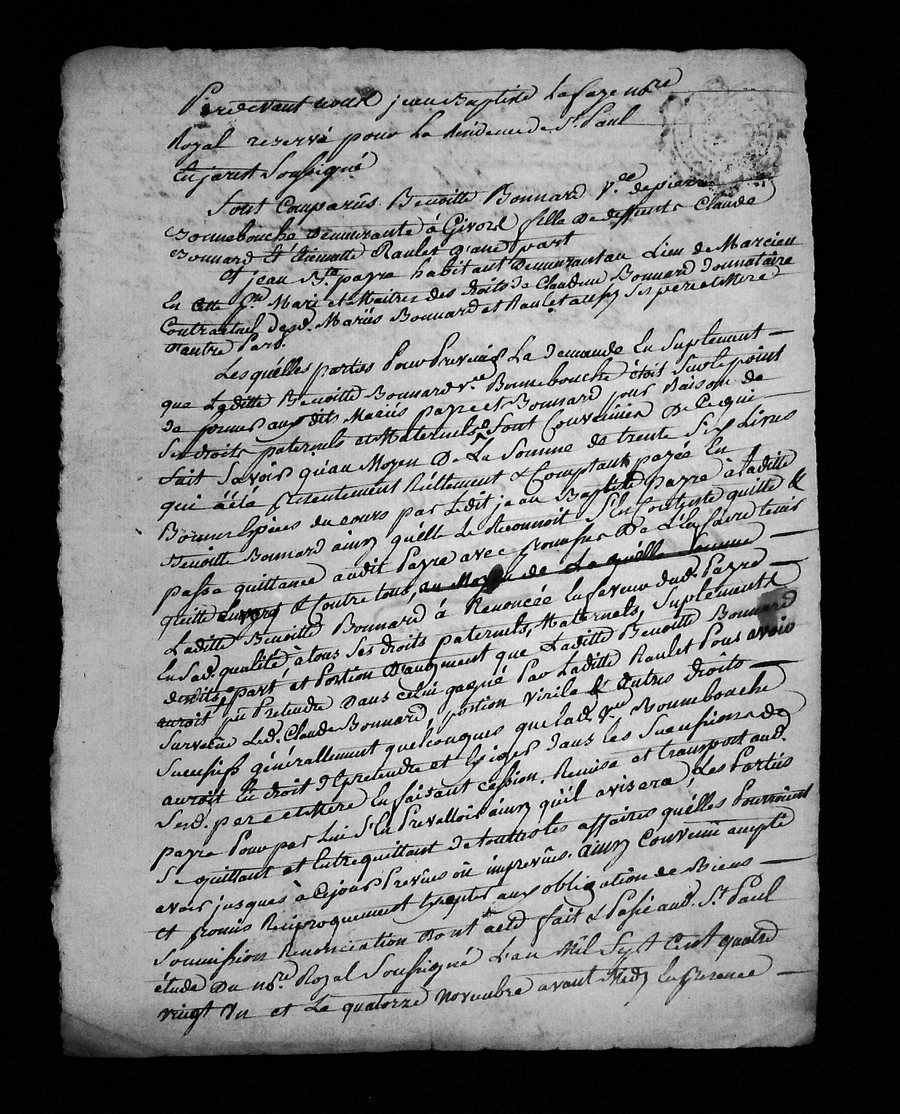 Pardevant nous jean Baptiste Lafaye nore
Royal reservé pour La Residence de St. Paul
En jarest Soussigné
Sont Comparûs Benoitte Bonnard Ve. de pierre
Bonnebouche demeurante à Givord fille De deffunts Claude
Bonnard & Etiennette Raulet D'une part
Et jean Bte. payre habitant Demeurant au Lieu de Marcieu
En cette Mari et Maitre des droits de Claudine Bonnard donnataire
Contractuel desd. Mariés Bonnard et Raulet aussy Ses pere et Mere
D'autre Part.
Lesquélles parties Pour Prevenir La demande En Suplement
que Laditte Benoitte Bonnard ve. Bonnebouche étoit Sur le point
de former aux dits Mariés payre et Bonnard pour Raison de
Ses droits paternels et Maternels Sont Convenûes De Ce qui
Suit Savoir qu'au Moyen De La Somme de trente Six Livres
qui à été presentement Réellement & Comptant payée En
Bonnes Espéces du cours par Ledit jean Baptiste Payre à Laditte
Benoitte Bonnard ainsy qu'élle Le Reconnoit S'En Contente quitte &
passe quittance audit Payre avec promesse De L'En faire tenir
quitte Envers & Contre tous, au Moyen de La quélle Somme
Laditte Benoitte Bonnard à Renoncée En faveur dud. Payre
En Sad. qualité à tous Ses Droits paternels, Maternels, Suplements
desdits, part et Portion D'augment que Laditte Benoitte Bonnard
auroit pû Pretendre Dans celui gagné Par Laditte Raulet Pour avoir
Survecue Led. Claude Bonnard, portion Virile & autres droits
Sucessifs générallement quelconques que lad. Ve. Bonnebouche
auroit En droit d'Y pretendre et Exiger dans les Sucessions de
Sesd. pere et Mere En faisant cession, Remise et transport aud.
payre Pour par Lui S'En Prevalloir ainsy qu'il avisera, Les Parties
Se quittant et Entrequittant de touttes les affaires quélles Pourroient
avoir jusques à Ce jour Prevûes où imprevûes. ainsy Convenû accepté
et promis Reciproquement Executer aux obligation de Biens
Soumission Renonciation Dont acte fait & Passé aud. St. Paul
étude Du nore. Royal Soussigné L'an Mil Sept Cent quatre
vingt Un et Le quatorze novembre avant Midy En presence